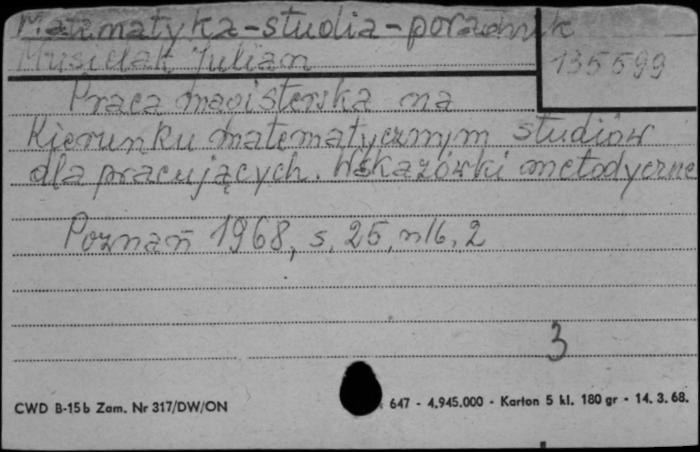 Matematyka-studia-poradnik
Musielak Julian
135599
Praca magisterska na
Kierunku matematycznym studiów
dla pracujących. Wskazówki metodyczne
Poznań 1968, s. 25, nlb. 2
3
CWD B-15b Zam. Nr 317/DW/ON
647 - 4.945.000 - Karton 5 kl. 180 gr - 14. 3. 68.